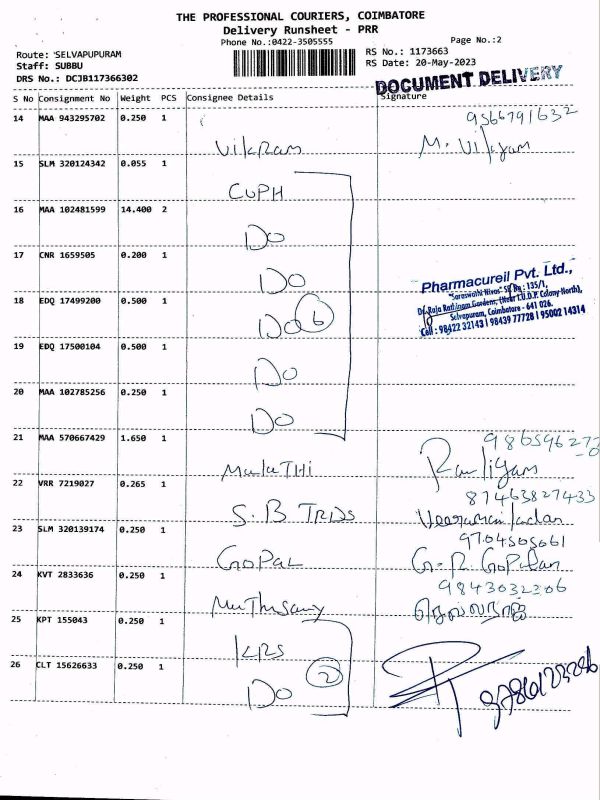 THE PROFESSIONAL COURIERS, COIMBATORE
Delivery Runsheet - PRR
Phone No.:0422-3505555
Page No.:2
Route: SELVAPUPURAM
Staff: SUBBU
DRS No.: DCJB117366302
RS No.: 1173663
RS Date: 20-May-2023
DOCUMENT DELIVERY
S No Consignment No Weight PCS Consignee Details Signature
14 MAA 943295702 0.250 1
9566791632
Vikram
15 SLM 320124342 0.055 1
CUPH
16 MAA 102481599 14.400 2
Do
17 CNR 1659505 0.200 1
Do
Pharmacureil Pvt. Ltd.,
"Saraswathi Nivas" SF No : 135/1,
Dr. Raja Rathinam Gardens, (Near T.U.D.P. Colony North),
Selvapuram, Coimbatore - 641 026.
Cell : 98422 32143 | 98439 77728 | 95002 14314
18 EDQ 17499200 0.500 1
Do 6
19 EDQ 17500104 0.500 1
Do
20 MAA 102785256 0.250 1
Do
21 MAA 570667429 1.650 1
MalaTHi
22 VRR 7219027 0.265 1
87463827433
S.B TRDS
23 SLM 320139174 0.250 1
9704505061
GOPAL G.R. Gopalan
24 KVT 2833636 0.250 1
9843032306
MuThusamy
25 KPT 155043 0.250 1
KRS
26 CLT 15626633 0.250 1
2
Do